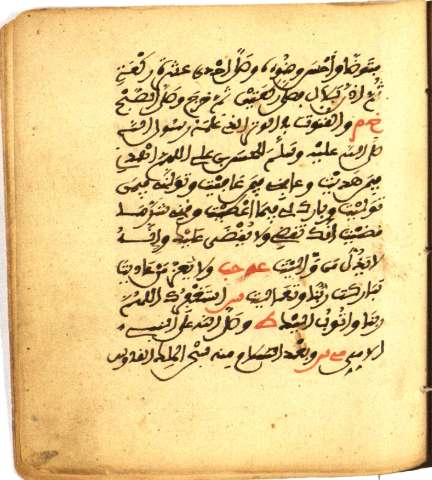 فتوضأ وأحسن وضوءه وصلى احدى عشرة ركعة
ثم اذن بلال فصلى ركعتين ثم خرج وصلى الصبح
خ م والقنوت في الوتر الذي علمه رسول الله
صلى الله عليه وسلم للحسن بن علي اللهم اهدني
فيمن هديت وعافني فيمن عافيت وتولني فيمن
توليت وبارك لي فيما اعطيت وقني شر ما
قضيت انك تقضي ولا يقضى عليك وانه
لا يذل من واليت عو حب ولا يعز من عاديت
تباركت ربنا وتعاليت س استغفرك اللهم
ربنا واتوب اليك ط وصلى الله على النبي
الامي مس وبعد السلام منه سبحن الملك القدوس